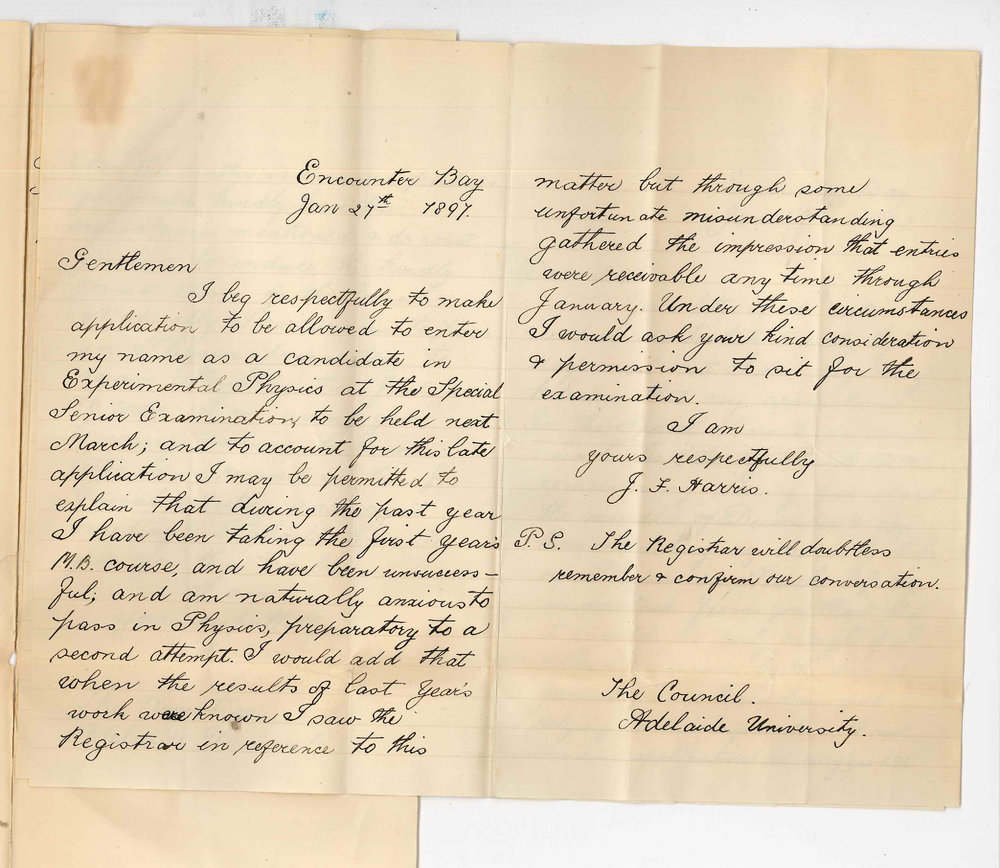 Encounter Bay
Jan 27th 1897.
Gentlemen
I beg respectfully to make
application to be allowed to enter
my name as a candidate in
Experimental Physics at the Special
Senior Examination, to be held next
March; and to account for this late
application I may be permitted to
explain that during the past year
I have been taking the first year's
M.B. course, and have been unsuccess-
ful; and am naturally anxious to
pass in Physics, preparatory to a
second attempt. I would add that
when the results of last Year's
work were known I saw the
Registrar in reference to this
matter but through some
unfortunate misunderstanding
gathered the impression that entries
were receivable any time through
January. Under these circumstances
I would ask your kind consideration
& permission to sit for the
examination.
I am
yours respectfully
J. F. Harris.
P.S. The Registrar will doubtless
remember & confirm our conversation.
The Council.
Adelaide University.